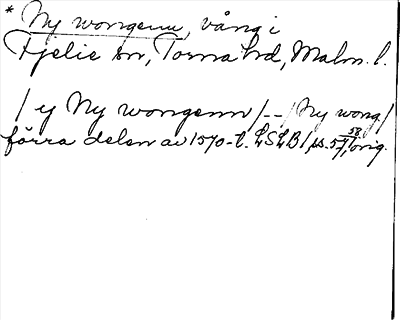 * Ny wongenn, vång i
Fjelie sn, Torna hd, Malm. l.
/ ij Ny wongenn / -- / Ny wong /
förra delen av 1570-t. LSLB I, ps. 57, 58, orig.